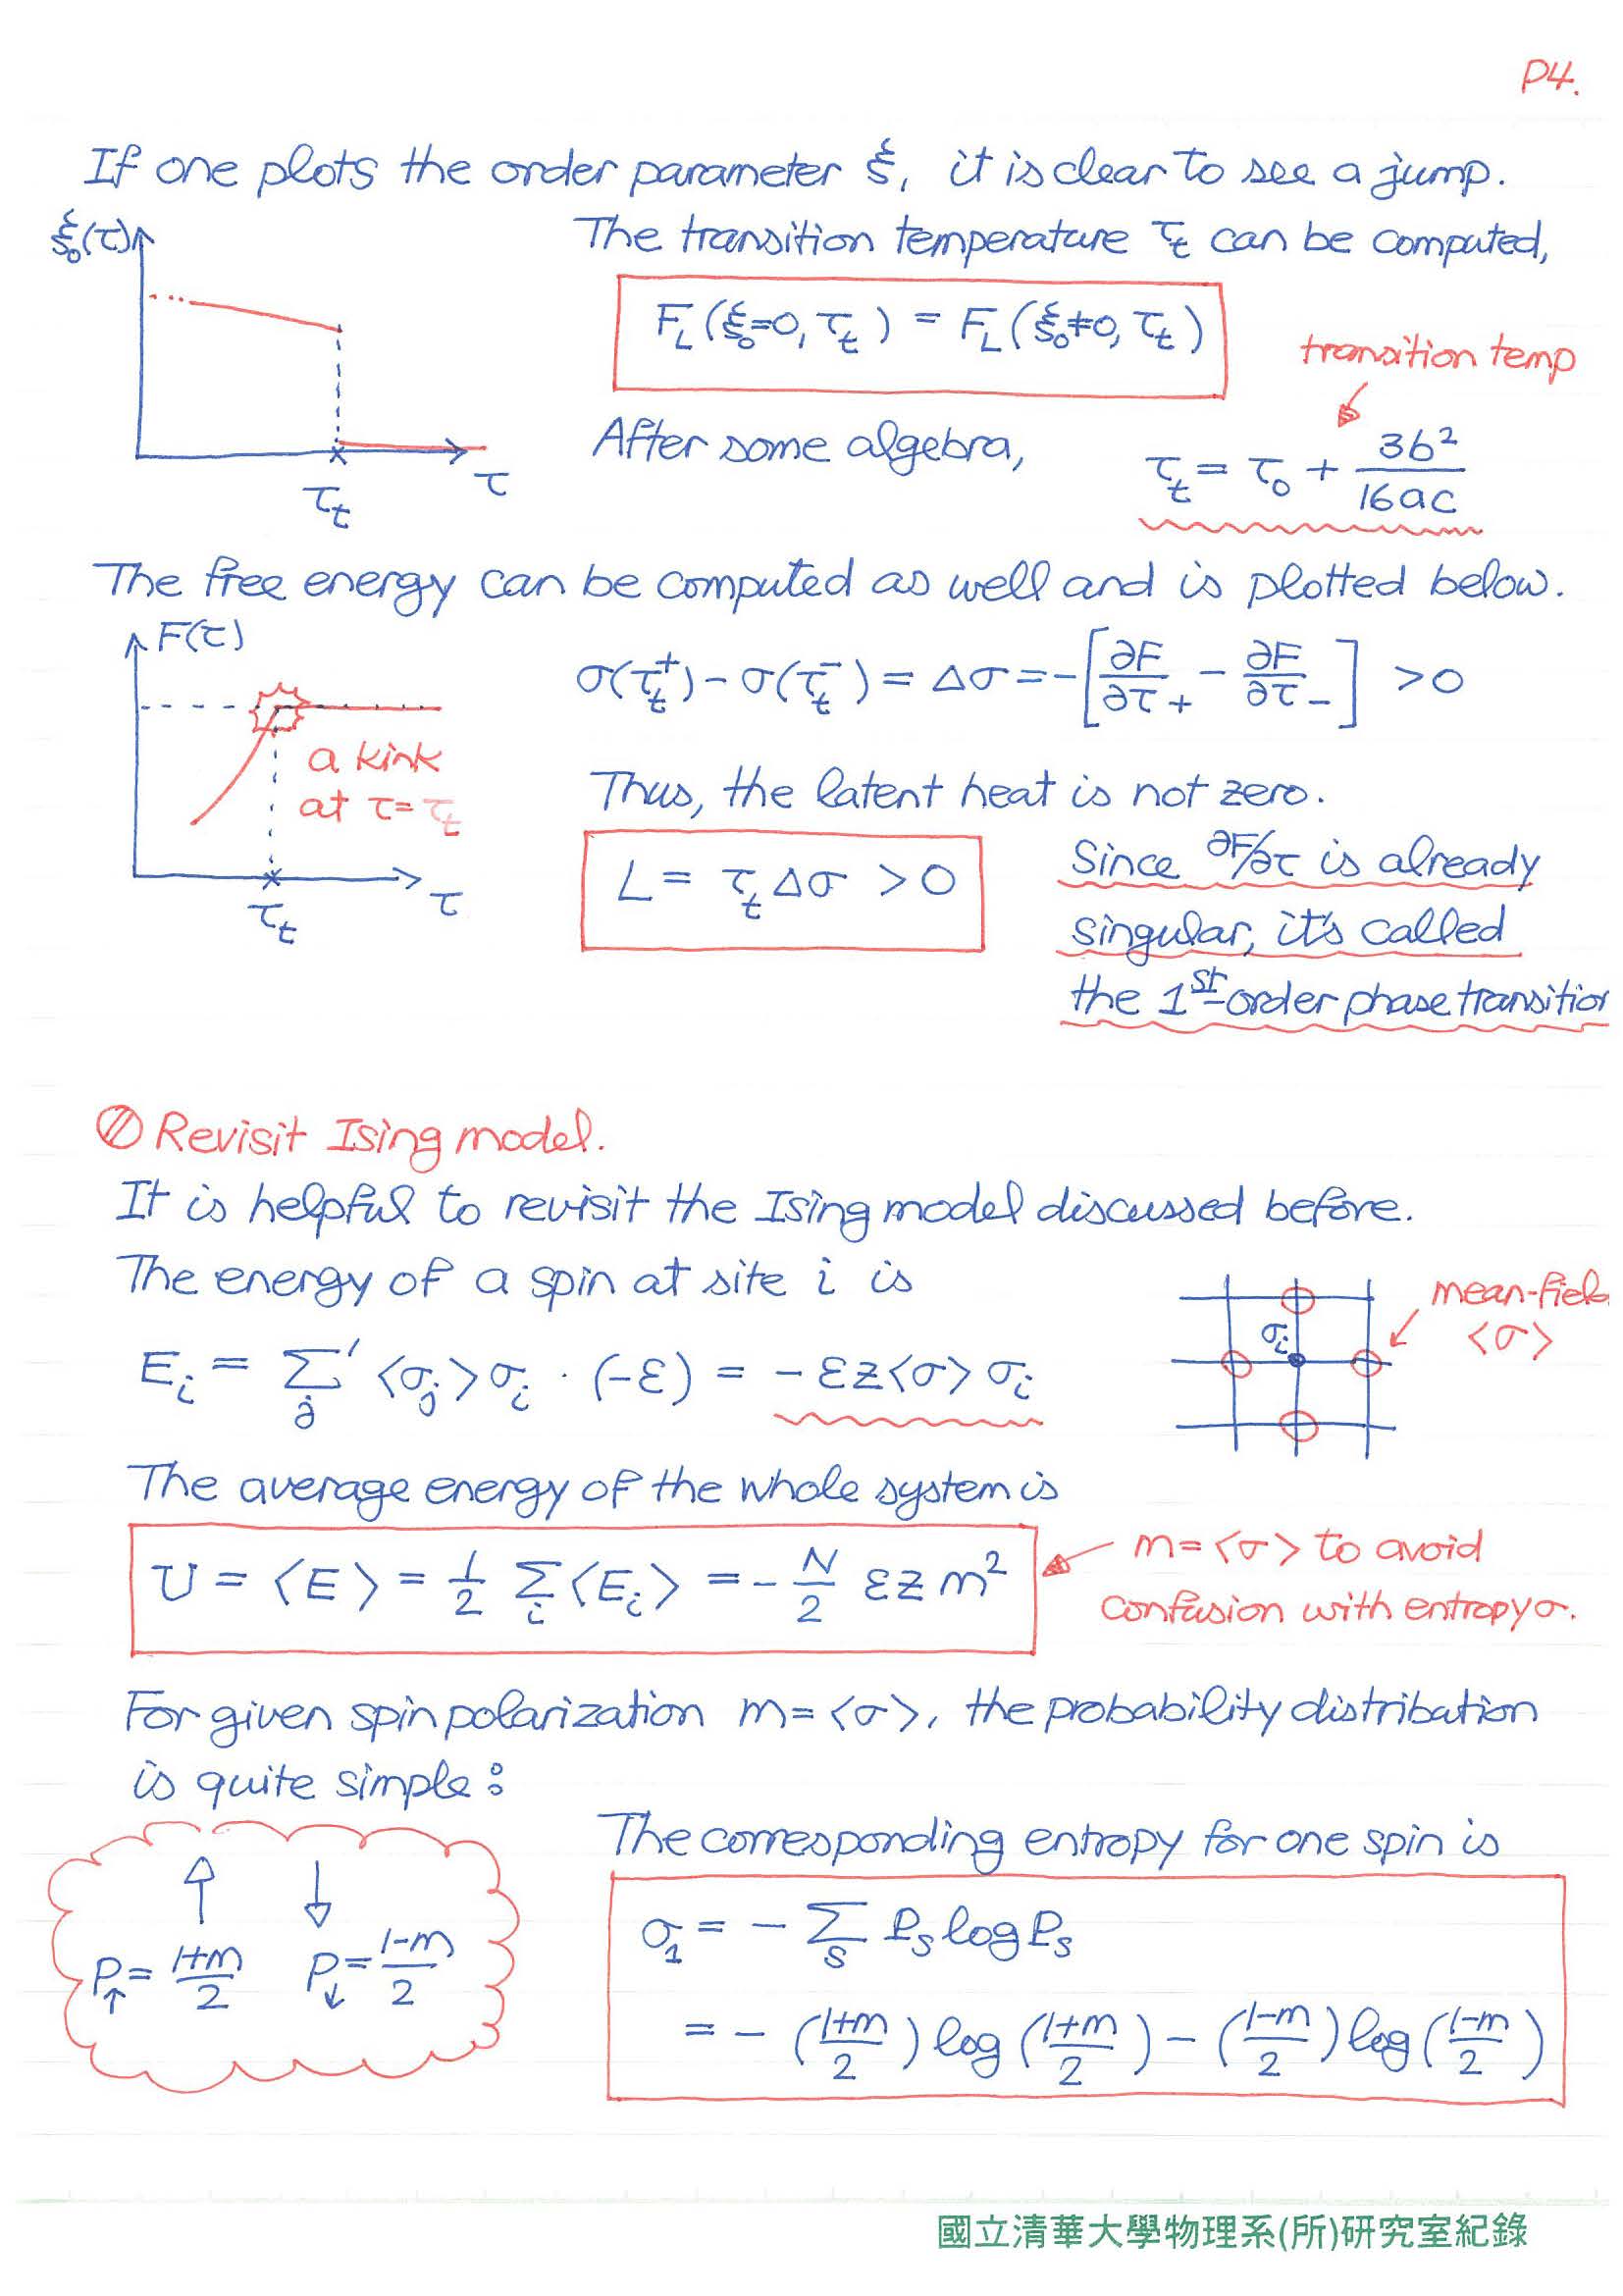 P4.
If one plots the order parameter ξ, it is clear to see a jump.
ξ₀(τ)
The transition temperature τ_t can be computed,
F_L(ξ₀=0, τ_t) = F_L(ξ₀≠0, τ_t)
transition temp
After some algebra,
τ_t = τ₀ + 3b²/16ac
τ
τ_t
The free energy can be computed as well and is plotted below.
F(τ)
σ(τ_t⁺) - σ(τ_t⁻) = Δσ = -[∂F/∂τ₊ - ∂F/∂τ₋] > 0
a kink
at τ = τ_t
Thus, the latent heat is not zero.
L = τ_t Δσ > 0
τ
τ_t
Since ∂F/∂τ is already
singular, it's called
the 1st-order phase transition
Revisit Ising model.
It is helpful to revisit the Ising model discussed before.
The energy of a spin at site i is
E_i = Σ'_j <σ_j> σ_i · (-ε) = -εz<σ>σ_i
σ_i
mean-fiel
<σ>
The average energy of the whole system is
U = <E> = 1/2 Σ_i <E_i> = - N/2 εz m²
m = <σ> to avoid
confusion with entropy σ.
For given spin polarization m = <σ>, the probability distribution
is quite simple:
↑ ↓
P_↑ = (1+m)/2 P_↓ = (1-m)/2
The corresponding entropy for one spin is
σ₁ = - Σ_s P_s log P_s
= - ((1+m)/2) log ((1+m)/2) - ((1-m)/2) log ((1-m)/2)
國立清華大學物理系(所)研究室紀錄